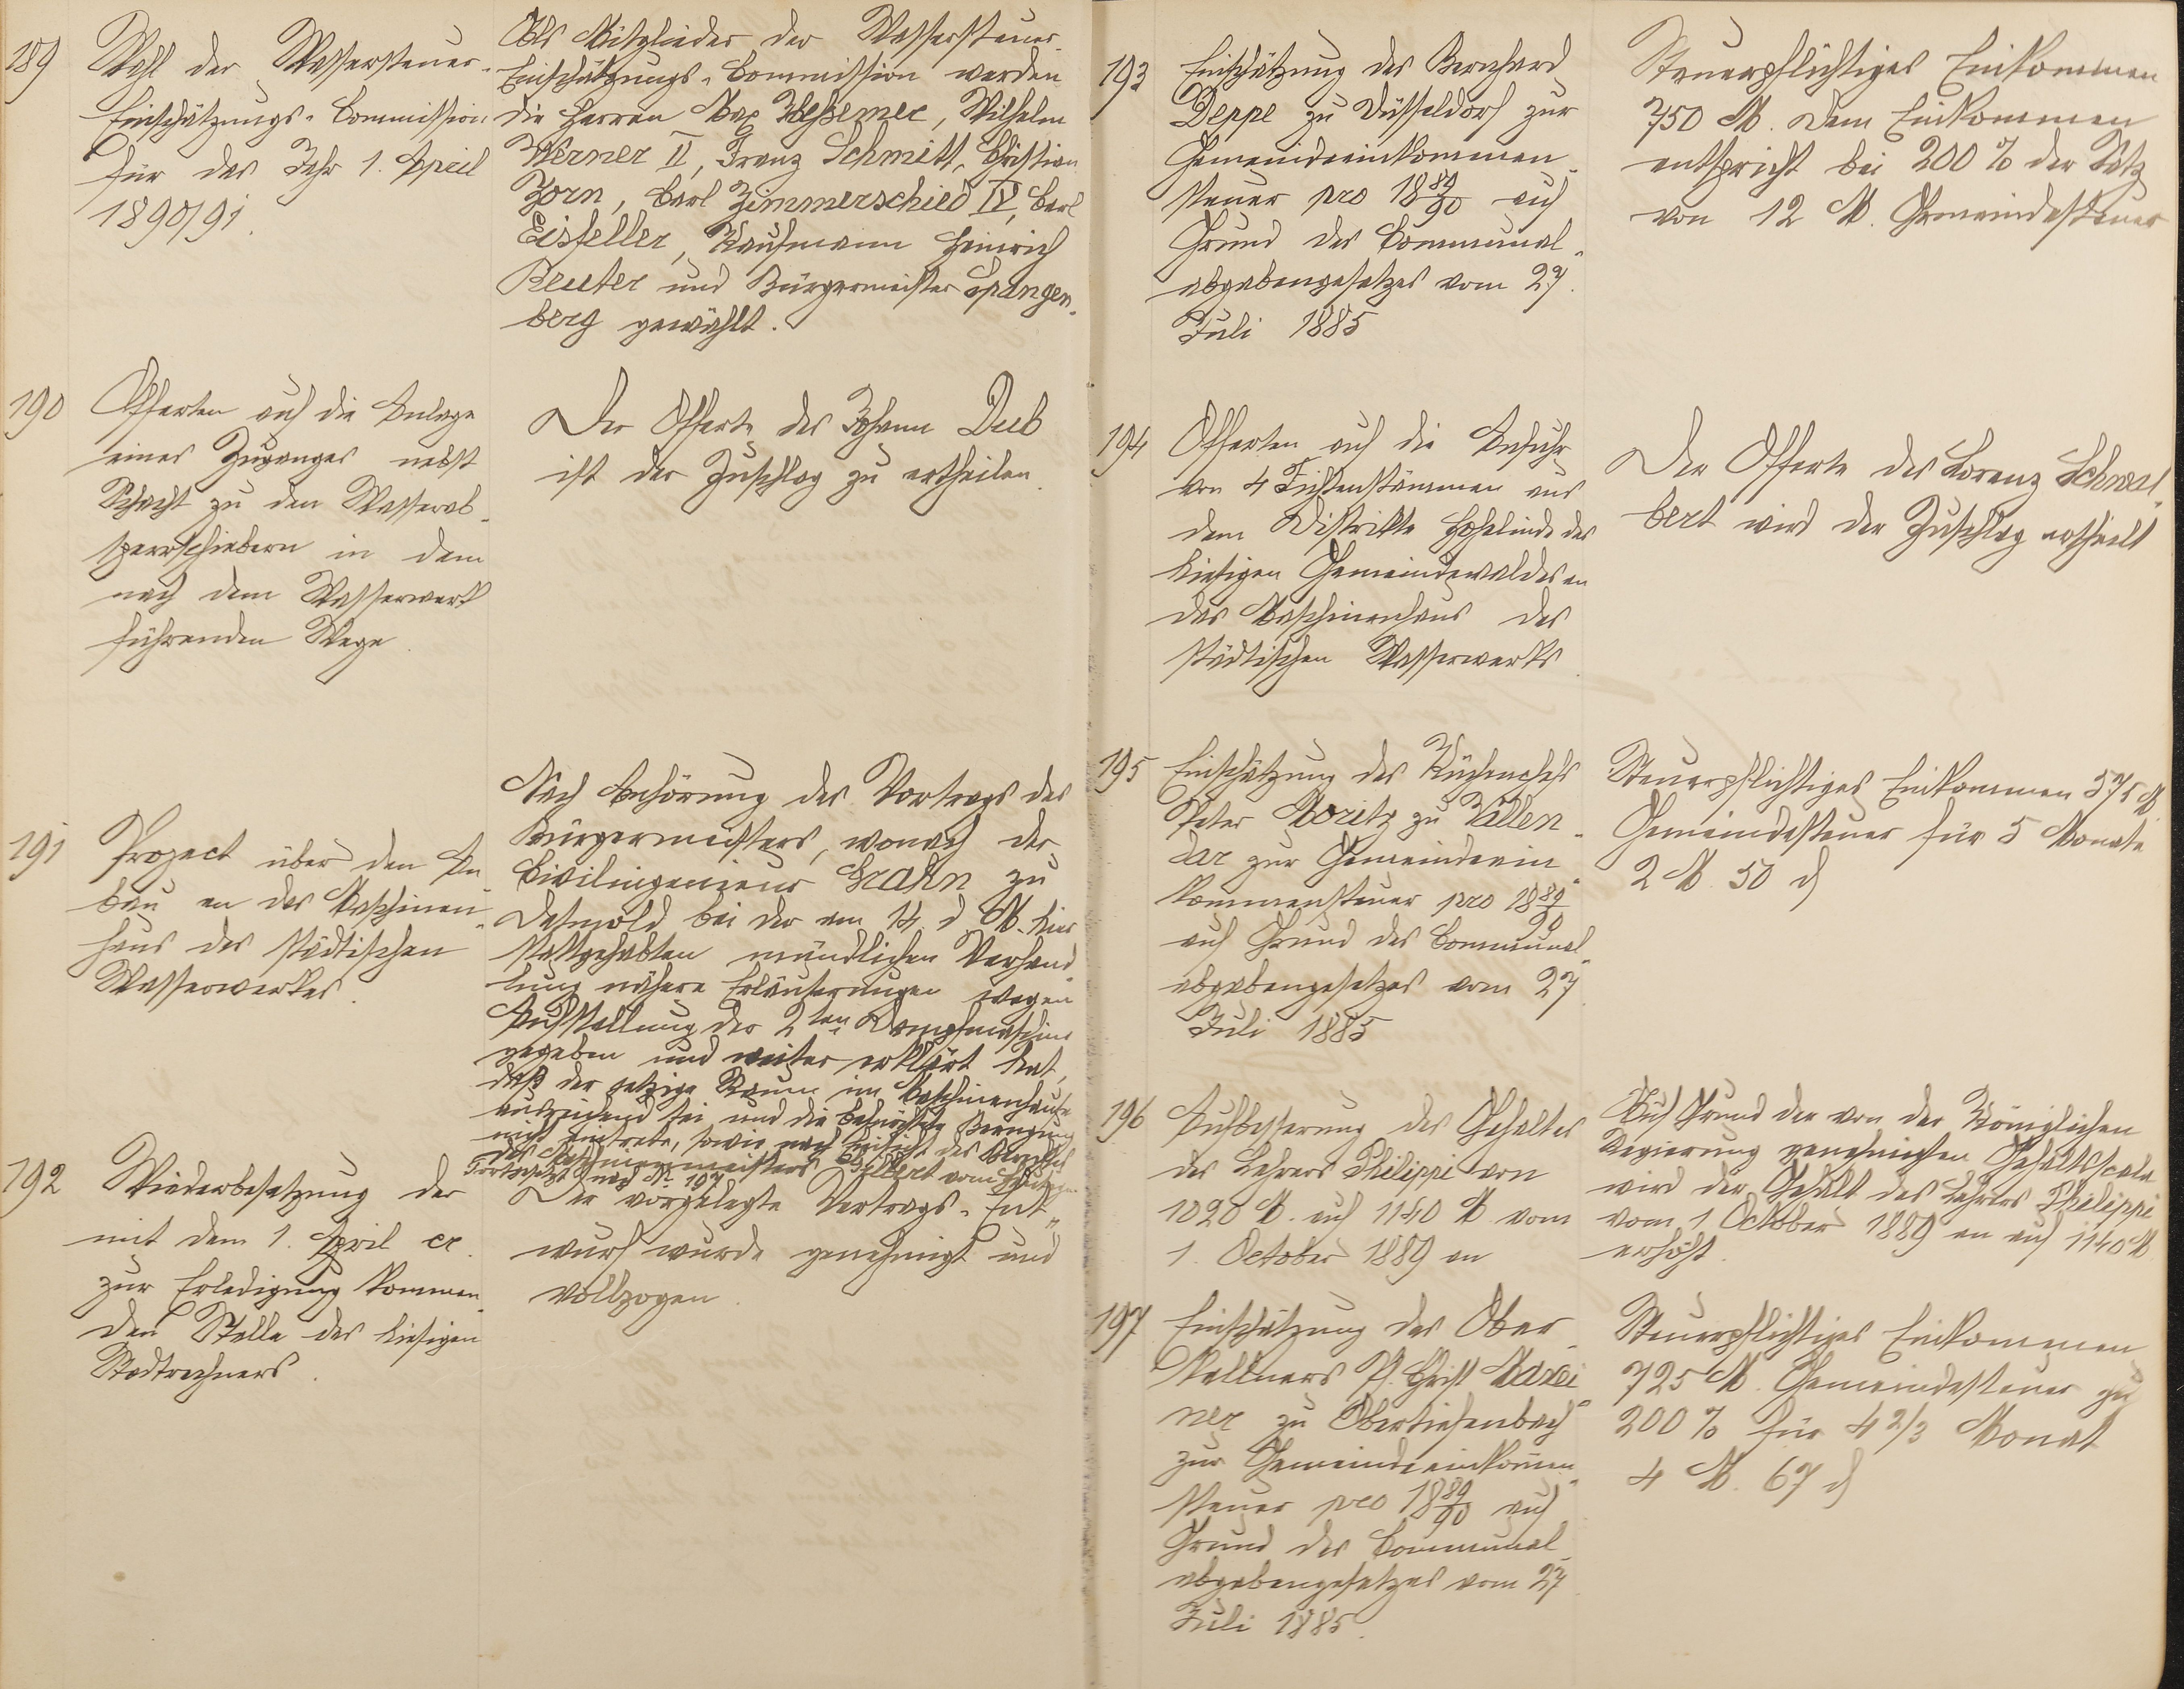 189
Wahl der Wassersteuer-
Einschätzungs-Commission
für das Jahr 1. April
1890/91.
Als Mitglieder der Wassersteuer-
Einschätzungs-Commission werden
die Herren Max Weßemer, Wilhelm
Werner II, Franz Schmitt, Christian
Zorn, Carl Zimmerschied IV, Carl
Eisfeller, Kaufmann Heinrich
Reuter und Bürgermeister Spangen-
berg gewählt.
190
Offerten auf die Anlage
eines Zuganges nebst
Schacht zu den Wasserab-
sperrschiebern in dem
nach dem Wasserwerk
führenden Wege.
Der Offerte des Johann Dub
ist der Zuschlag zu ertheilen.
191
Project über den An-
bau an das Maschinen-
haus des städtischen
Wasserwerkes.
Nach Anhörung des Vortrags des
Bürgermeisters, wonach der
Civilingenieur Grahn zu
Detmold bei der am 14. d. M. hier
stattgehabten mündlichen Verhand-
lung nähere Erläuterungen wegen
Aufstellung der 2ten Dampfmaschine
gegeben und weiter erklärt hat,
daß der jetzige Raum im Maschinenhause
ausreichend sei und die befürchtete
nicht eintrete, sowie nach Einsicht des
des Maschinenmeisters vom
Fortgesetzt nach No 197
192
Wiederbesetzung der
mit dem 1. April cr.
zur Erledigung kommen-
den Stelle des hiesigen
Stadtrechners.
Der vorgelegte Vertrags-Ent-
wurf wurde genehmigt und
vollzogen.
193
Einschätzung des Bernhard
Deppe zu Düsseldorf zur
Gemeindeeinkommen-
steuer pro 1889/90 auf
Grund des Communal-
abgabengesetzes vom 27.
Juli 1885
Steuerpflichtiges Einkommen
750 M. Dem Einkommen
entspricht bei 200 % der Satz
von 12 M. Gemeindesteuer
194
Offerten auf die Anfuhr
von 4 Fichtenstämmen aus
dem Distrikte Hohelinde des
hiesigen Gemeindewaldes an
das Maschinenhaus des
städtischen Wasserwerks
Der Offerte des Lorenz Schwal-
bert wird der Zuschlag ertheilt
195
Einschätzung des Küchenchefs
Peter Moritz zu Vallen-
dar zur Gemeindeein-
kommensteuer pro 1889/90
auf Grund des Communal-
abgabengesetzes vom 27.
Juli 1885
Steuerpflichtiges Einkommen 375 M
Gemeindesteuer für 5 Monate
2 M. 50 d
196
Aufbesserung des Gehaltes
des Lehrers Philippi von
1020 M. auf 1140 M. vom
1. October 1889 an
Auf Grund der von der Königlichen
Regierung genehmigten Gehaltsscala
wird der Gehalt des Lehrers Philippi
vom 1. October 1889 an auf 1140 M.
erhöht.
197
Einschätzung des Ober-
kellners P. Christ Marxei-
ner zu Obertiefenbach
zur Gemeindeeinkommen-
steuer pro 1889/90 auf
Grund des Communal-
abgabengesetzes vom 27.
Juli 1885.
Steuerpflichtiges Einkommen
725 M. Gemeindesteuer zu
200 % für 4 2/3 Monat
4 M. 67 d